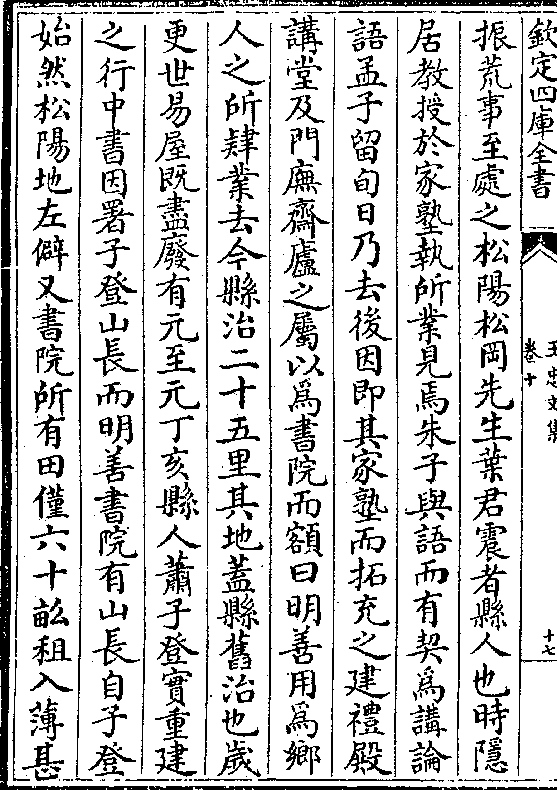 欽定四庫全書
王忠文集
卷十
十七
振荒事至處之松陽松岡先生葉君震者縣人也時隱
居教授於家塾執所業見焉朱子與語而有契為講論
語孟子留旬日乃去後因即其家塾而拓充之建禮殿
講堂及門廡齋廬之屬以為書院而額曰明善用為鄉
人之所肄業去今縣治二十五里其地蓋縣舊治也歲
更世易屋既盡廢有元至元丁亥縣人蕭子登實重建
之行中書因署子登山長而明善書院有山長自子登
始然松陽地左僻又書院所有田僅六十畝租入薄甚